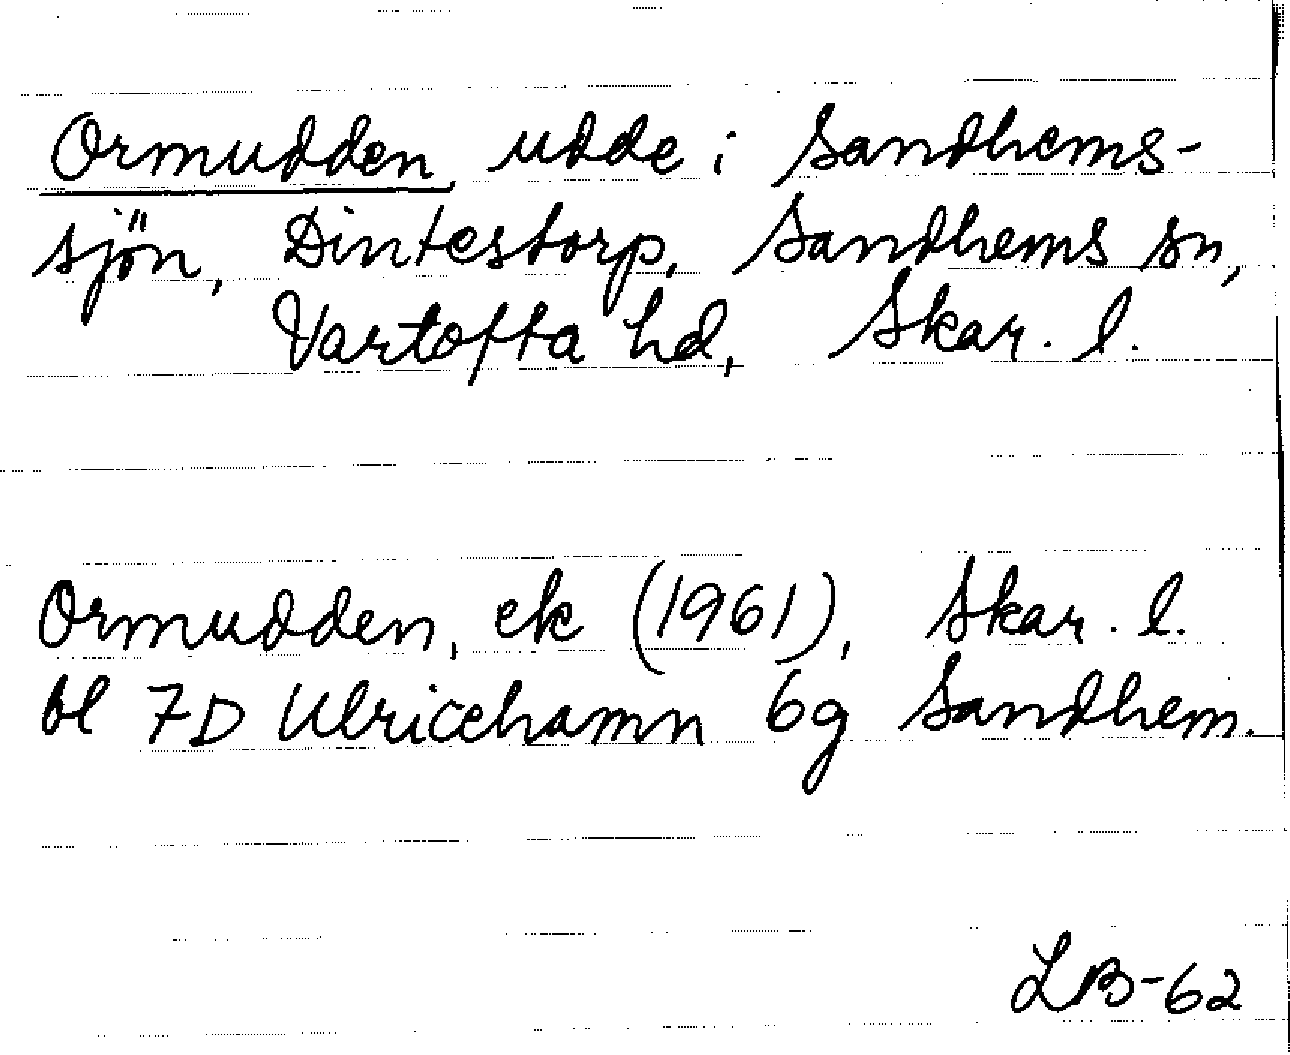 Ormudden, udde i Sandhems-
sjön, Dintestorp, Sandhems sn,
Vartofta hd, Skar. l.
Ormudden, ek (1961), Skar. l.
bl 7D Ulricehamn 6g Sandhem.
LB-62